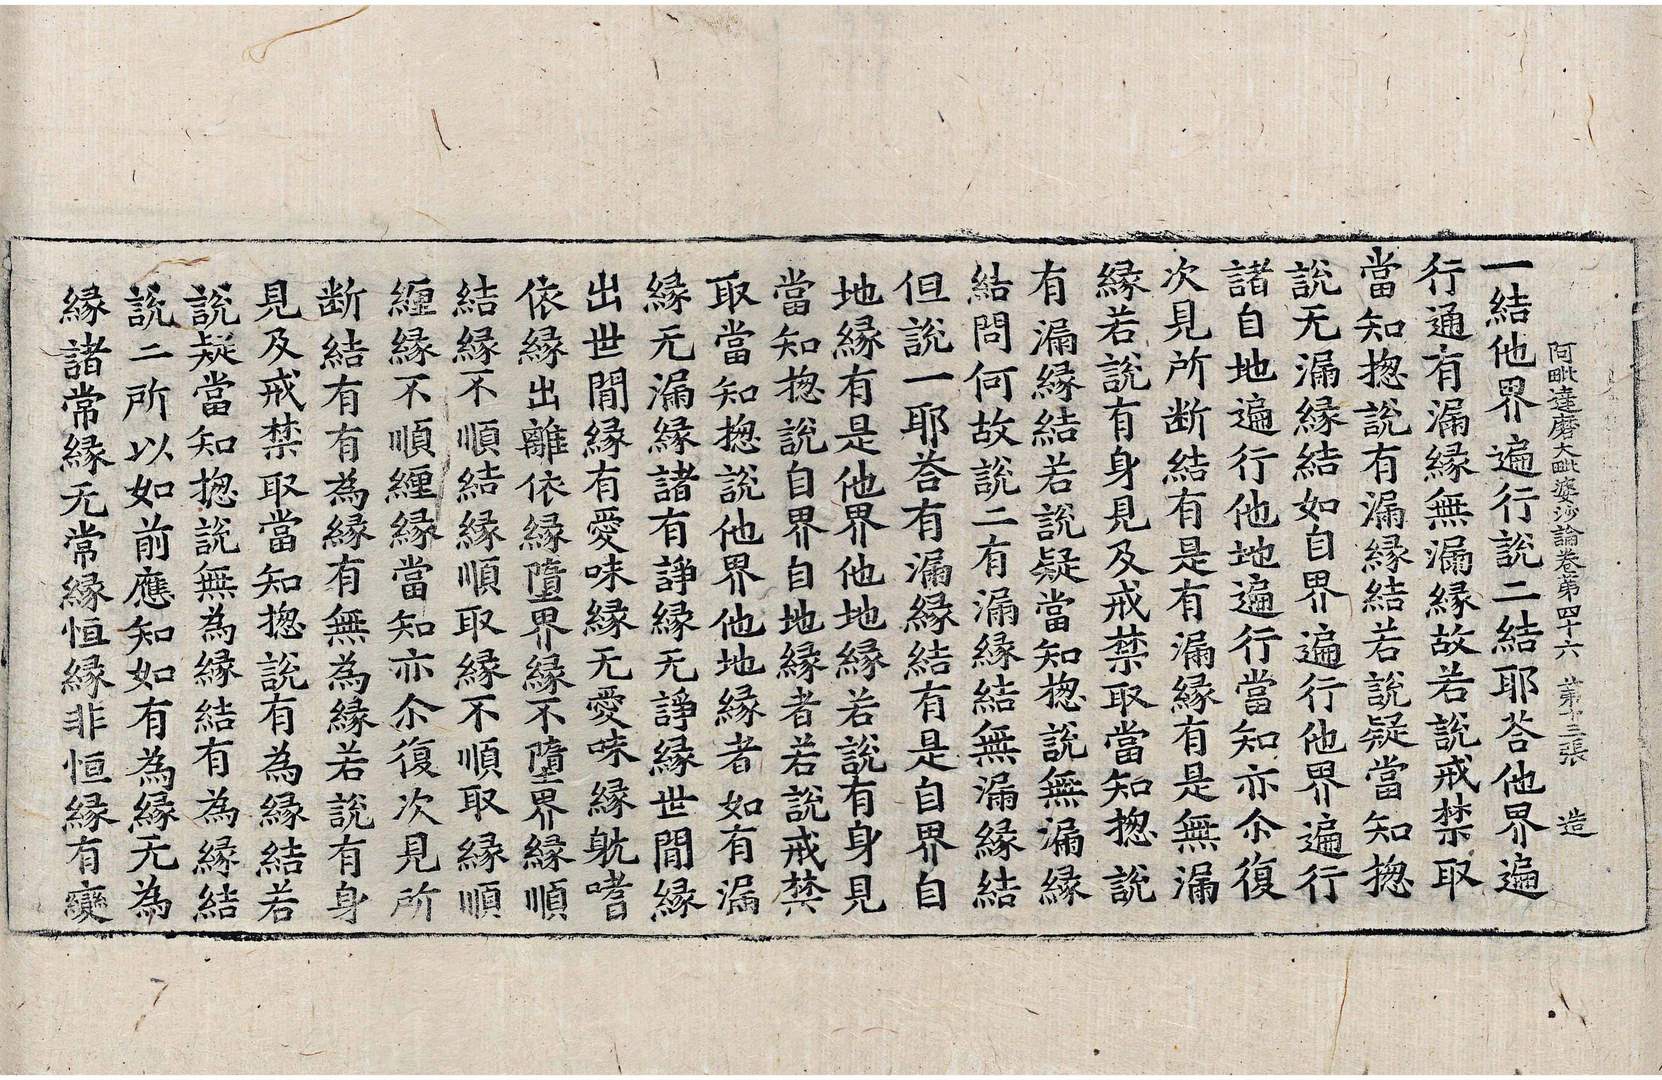 阿毗達磨大毗婆沙論卷第四十六 第十三張 造
一結他界遍行說二結耶荅他界遍
行通有漏緣無漏緣故若說戒禁取
當知揔說有漏緣結若說疑當知揔
說无漏緣結如自界遍行他界遍行
諸自地遍行他地遍行當知亦尒復
次見所断結有是有漏緣有是無漏
緣若說有身見及戒禁取當知揔說
有漏緣結若說疑當知揔說無漏緣
結問何故說二有漏緣結無漏緣結
但說一耶荅有漏緣結有是自界自
地緣有是他界他地緣若說有身見
當知揔說自界自地緣者若說戒禁
取當知揔說他界他地緣者如有漏
緣无漏緣諸有諍緣无諍緣世間緣
出世間緣有愛味緣无愛味緣躭嗜
依緣出離依緣墮界緣不墮界緣順
結緣不順結緣順取緣不順取緣順
纏緣不順纏緣當知亦尒復次見所
断結有有為緣有無為緣若說有身
見及戒禁取當知揔說有為緣結若
說疑當知揔說無為緣結有為緣結
說二所以如前應知如有為緣无為
緣諸常緣无常緣恒緣非恒緣有變